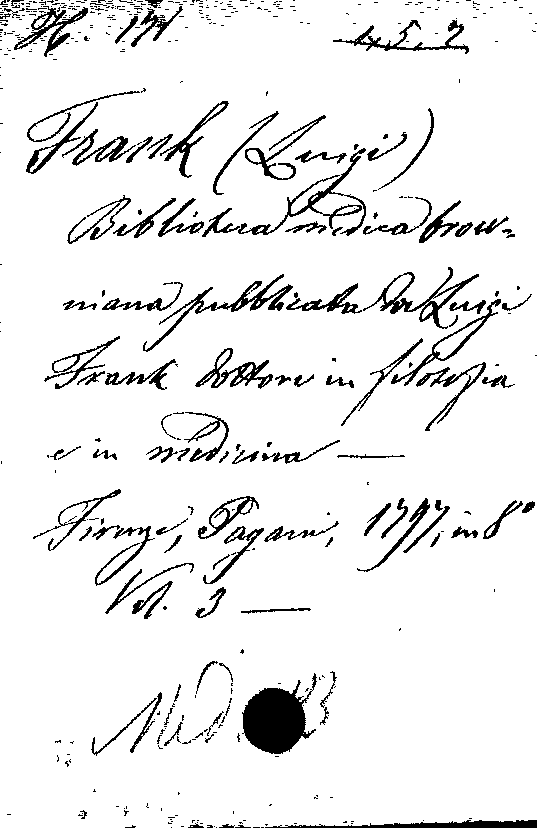 H. 171 4.5.7
Frank (Luigi)
Biblioteca medica brow-
niana pubblicata da Luigi
Frank dottore in filosofia
e in medicina —
Firenze, Pagani, 1797, in 8°
Vol. 3 —
Med.